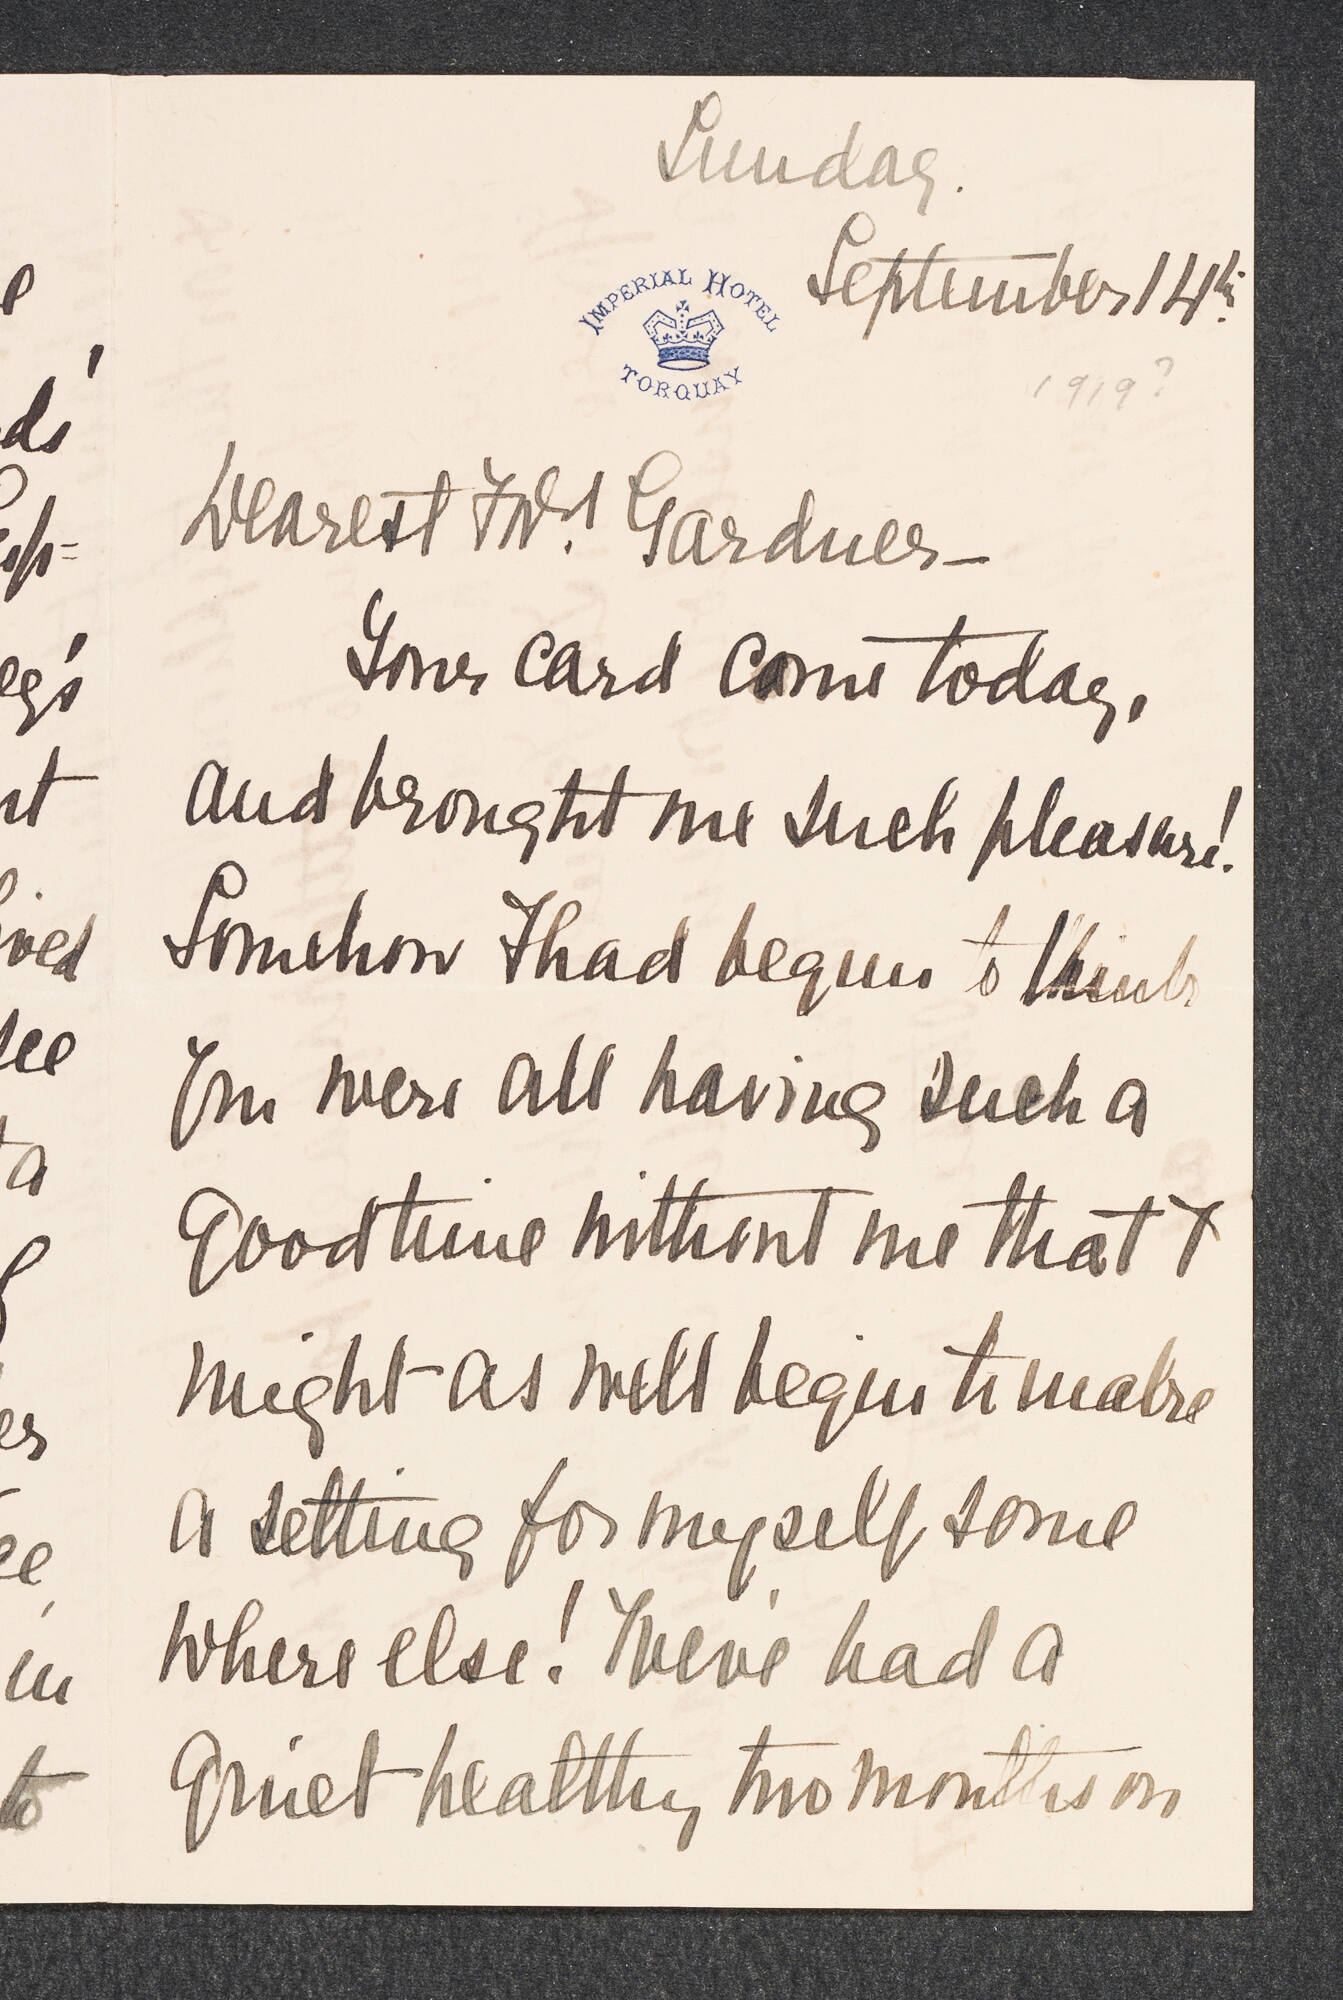 Sunday.
September 14th.
IMPERIAL HOTEL
TORQUAY
1919?
Dearest Mrs. Gardner—
Your card came today,
and brought me such pleasure!
Somehow I had begun to think
You were all having such a
good time without me that I
might as well begin to make
a setting for myself some
where else! We've had a
quiet healthy two months or
ds'
eg's
nt
ived
see
a
er
ee,
in
to